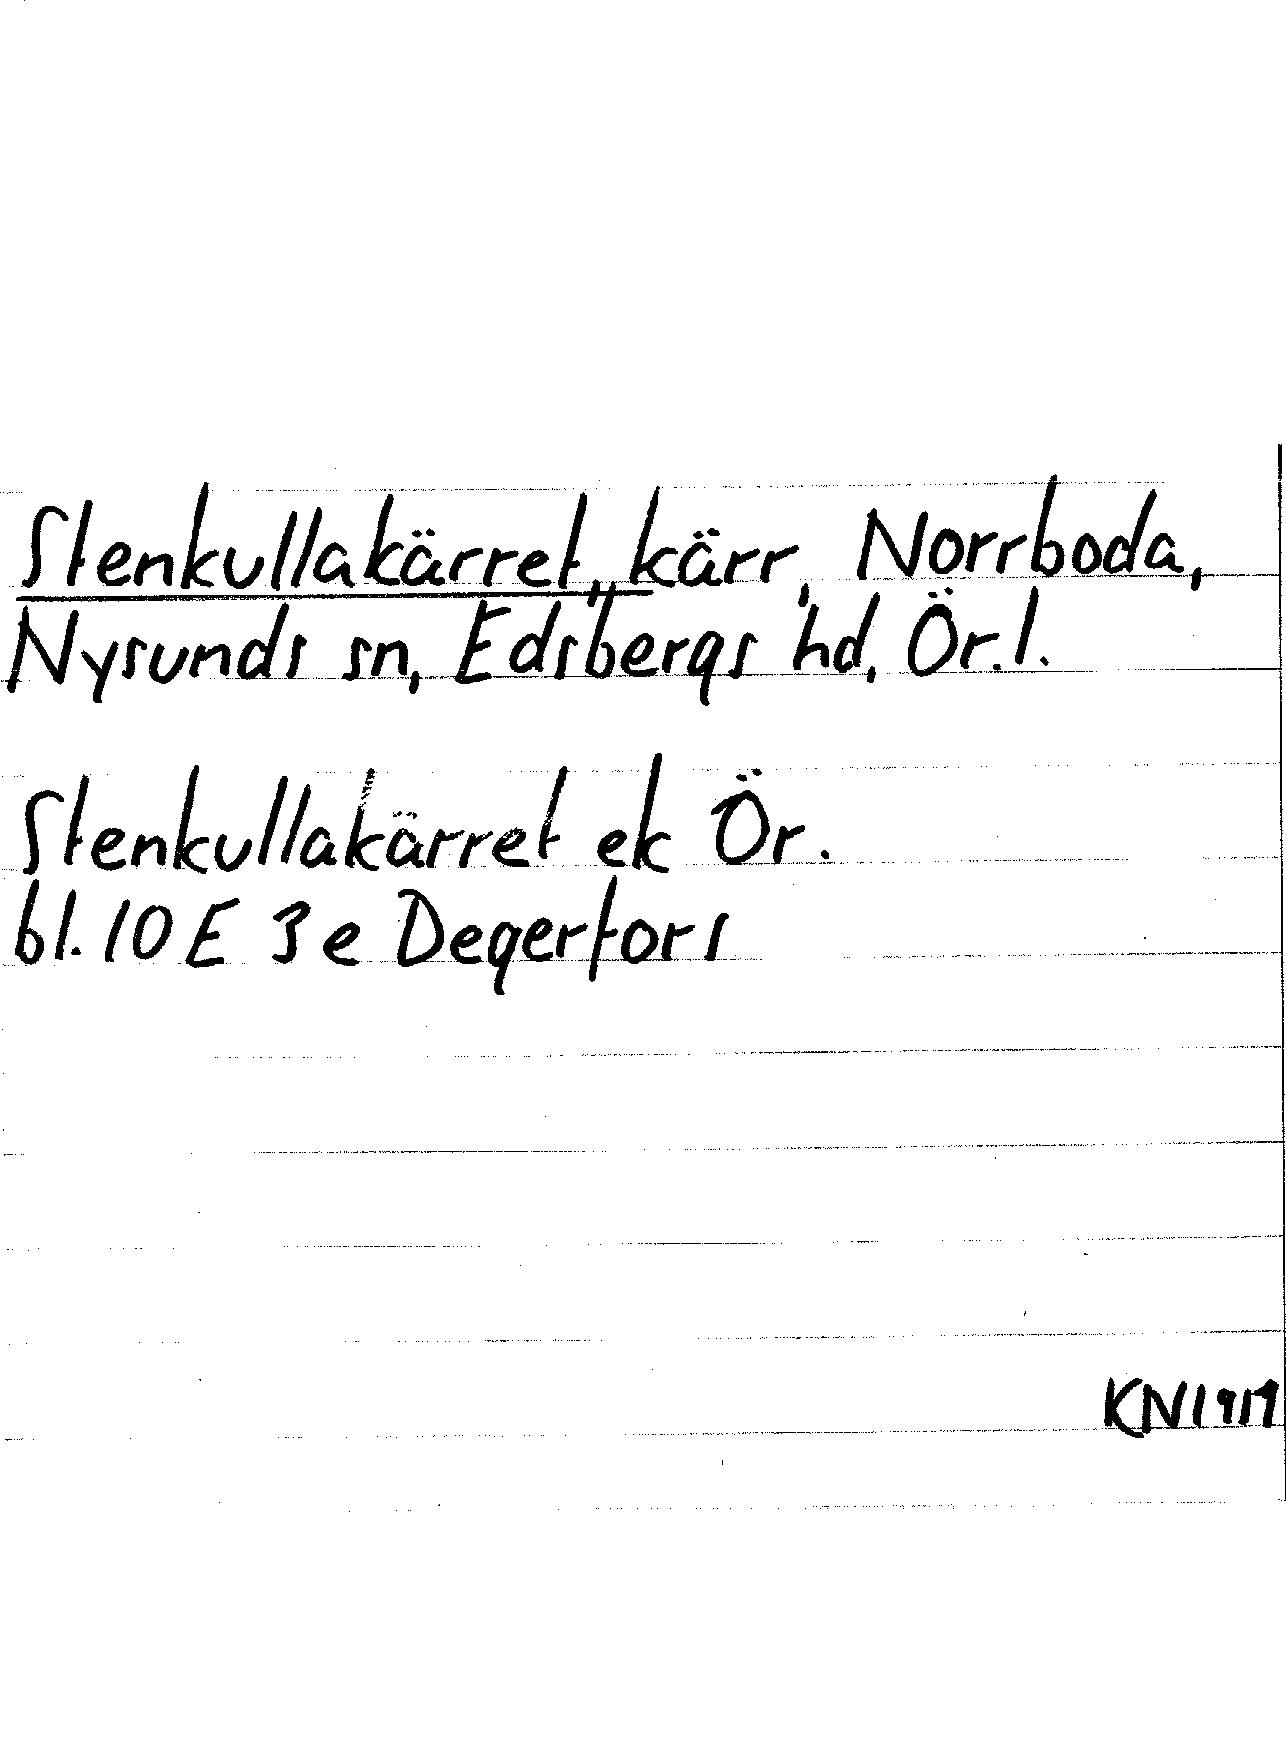 Stenkullakärret, kärr, Norrboda,
Nysunds sn, Edsbergs hd, Ör. l.
Stenkullakärret ek Ör.
bl. 10 E 3 e Degerfors
KN1919